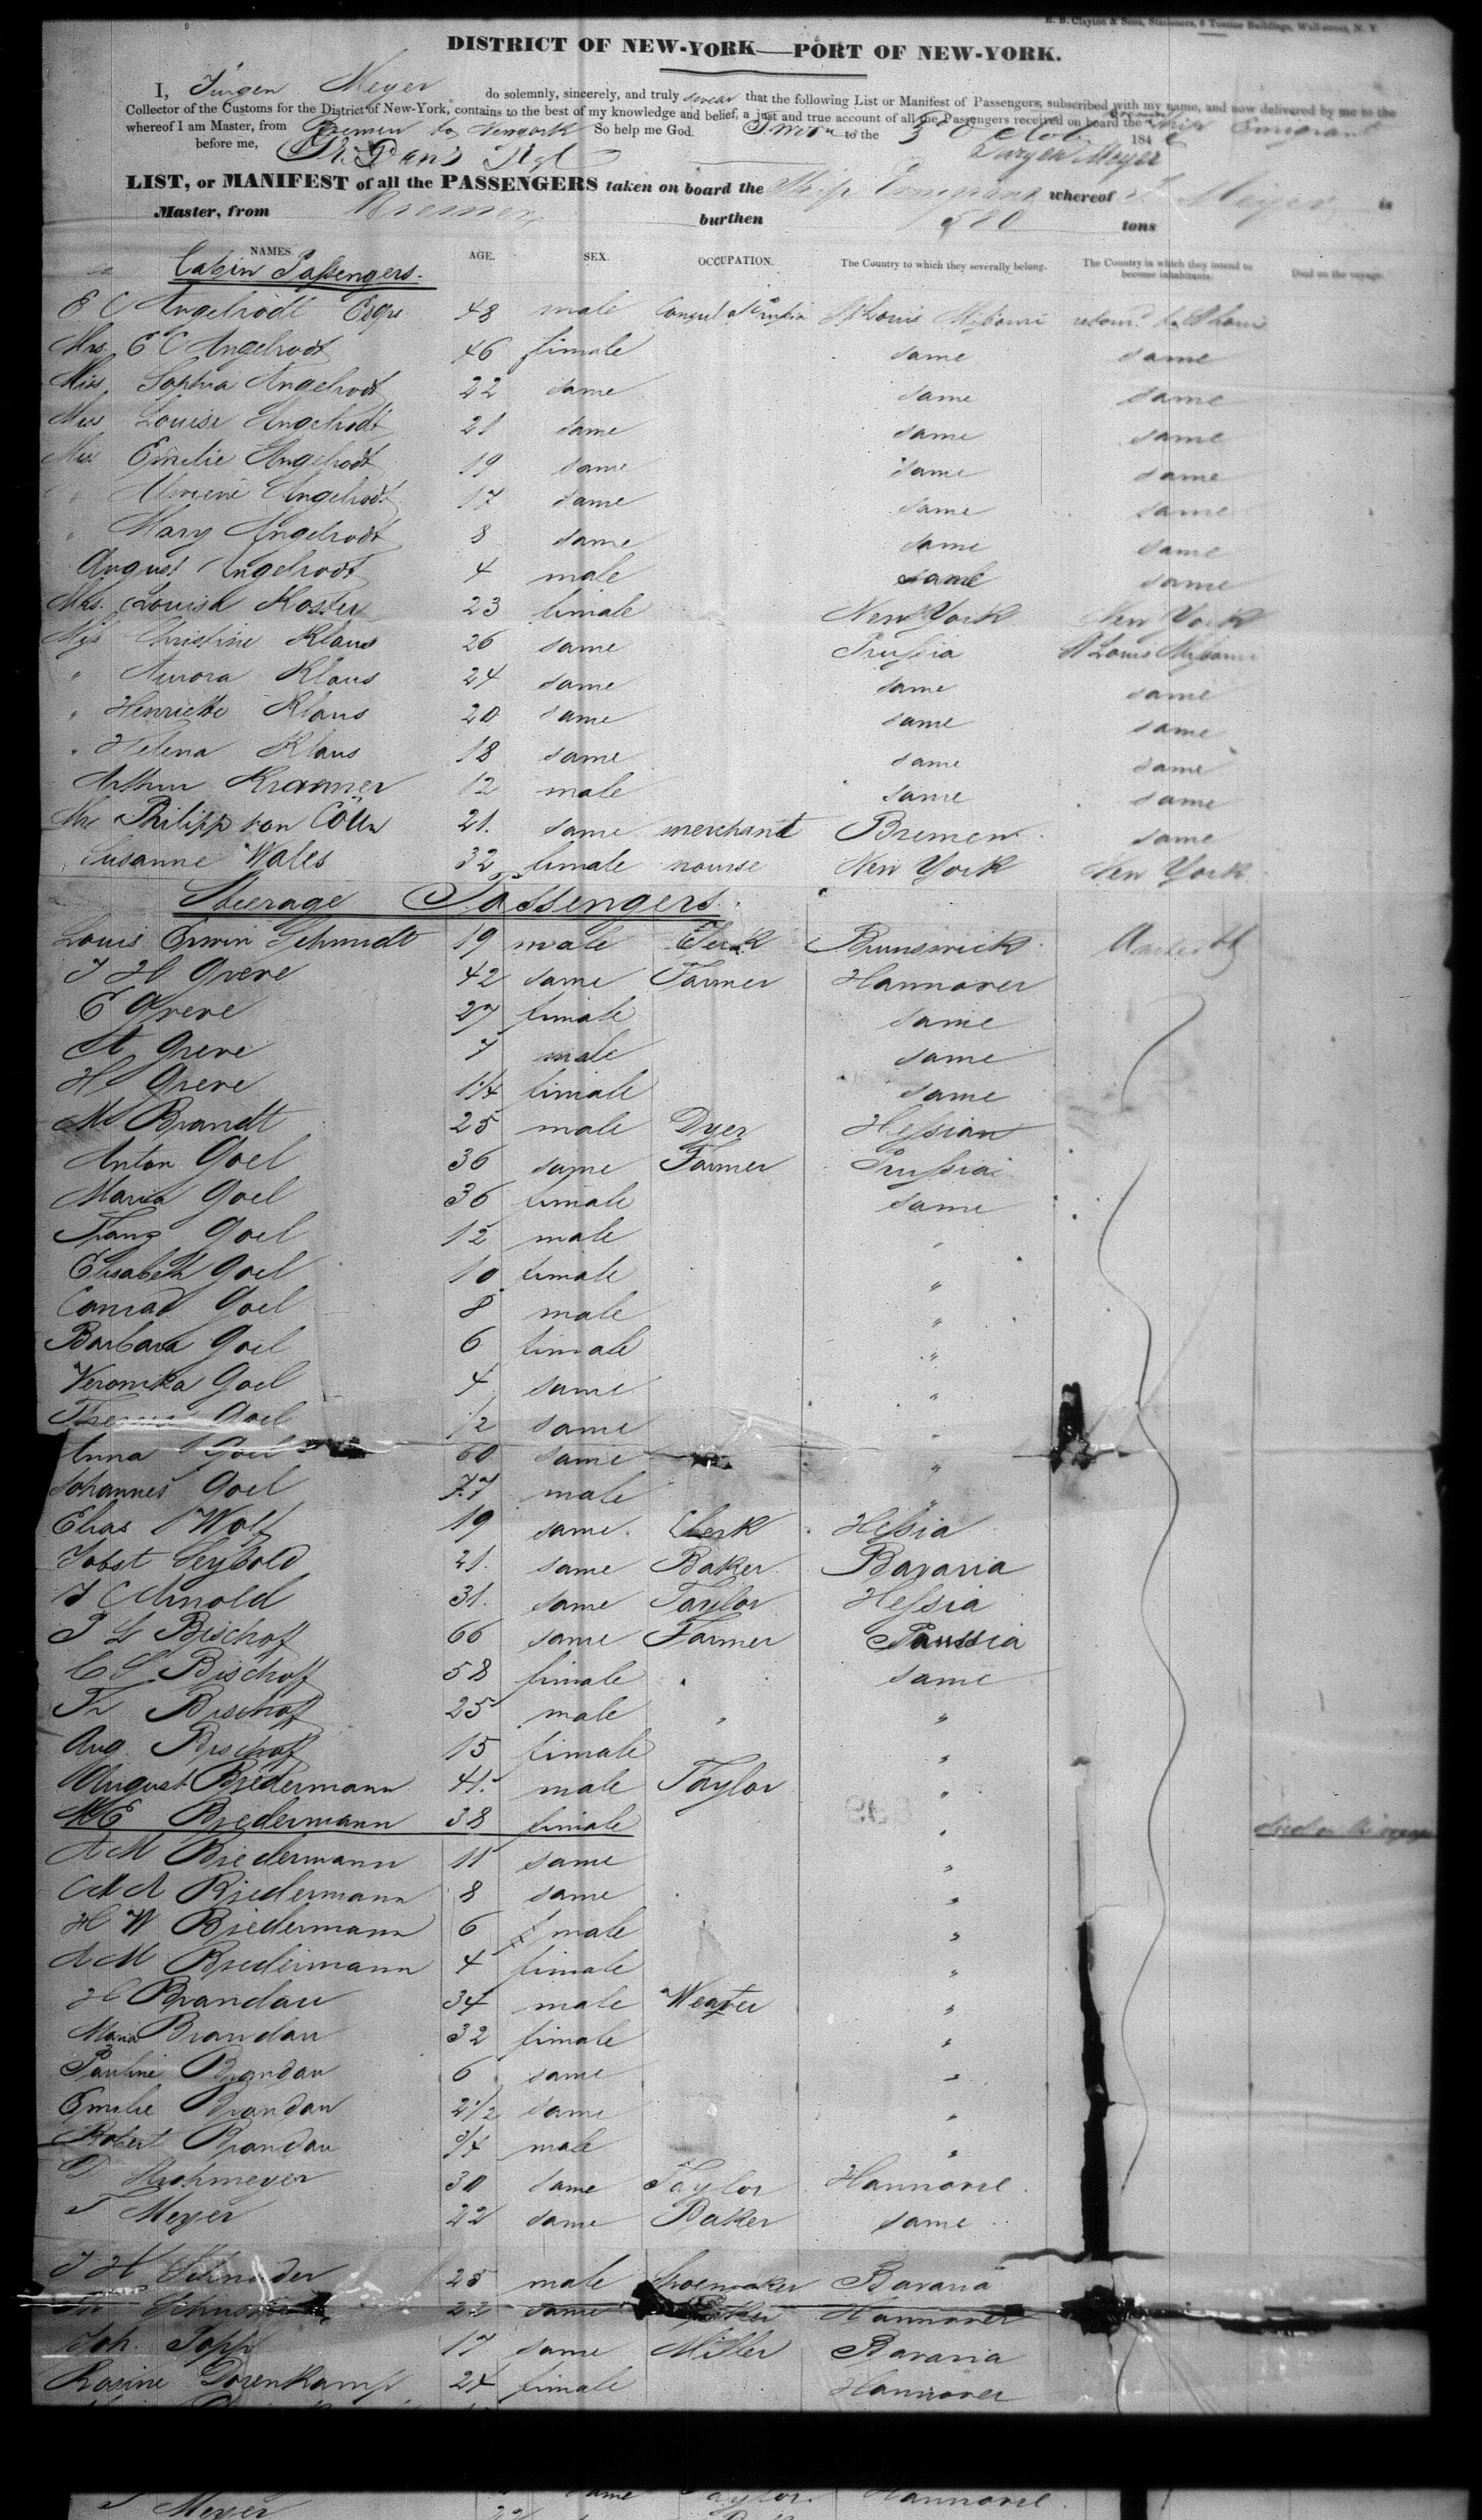 H. B. Clayton & Sons, Stationers, 8 Tontine Buildings, Wall-street, N. Y.
DISTRICT OF NEW-YORK—PORT OF NEW-YORK.
I, Jürgen Meyer do solemnly, sincerely, and truly swear that the following List or Manifest of Passengers, subscribed with my name, and now delivered by me to the
Collector of the Customs for the District of New-York, contains to the best of my knowledge and belief, a just and true account of all the Passengers received on board the Bremen Ship Emigrant
whereof I am Master, from Bremen to Newyork So help me God. Sworn to the 3 Octob 184
before me, Jürgen Meyer
LIST, or MANIFEST of all the PASSENGERS taken on board the Ship Emigrant whereof J. Meyer is
Master, from Bremen burthen 580 tons
NAMES. AGE. SEX. OCCUPATION. The Country to which they severally belong. The Country in which they intend to become inhabitants. Died on the voyage.
Cabin Passengers.
E C Angelrodt Esqre 48 male Consul of Prussia St Louis Missouri return to St Louis
Mrs. E C Angelrodt 46 female same same
Miss Sophia Angelrodt 22 same same same
Miss Louise Angelrodt 21 same same same
Miss Emilie Angelrodt 19 same same same
" Angelrodt 17 same same same
" Mary Angelrodt 8 same same same
August Angelrodt 4 male same same
Mrs. Louisa Koster 23 female New York New York
Miss Christine Klaus 26 same Prussia St Louis Missouri
" Aurora Klaus 24 same same same
" Henriette Klaus 20 same same same
" Helena Klaus 18 same same same
Arthur Kraemer 12 male same same
Mr Philipp von Cölln 21. same merchant Bremen same
Susanne Wales 32 female nourse New York New York
Steerage Passengers.
Louis Erwin Schmidt 19 male Clerk Brunswick
J H Greve 42 same Farmer Hannover
E Greve 27 female same
A Greve 7 male same
H Greve 1/4 female same
M Brandt 25 male Dyer Hessian
Anton Goel 36 same Farmer Prussia
Maria Goel 36 female same
Franz Goel 12 male "
Elisabeth Goel 10 female "
Conrad Goel 8 male "
Barbara Goel 6 female "
Veronika Goel 4 same "
Goel 1/2 same "
Anna Goel 60 same "
Johannes Goel 77 male "
Elias Wolf 19 same Clerk Hessia
Jobst Seybold 21. same Baker Bavaria
J C Arnold 31. same Taylor Hessia
J L Bischoff 66 same Farmer Prussia
C S Bischoff 58 female " same
Fr Bischoff 25 male " "
Aug. Bischoff 15 female "
August Biedermann 41. male Taylor "
M E Biedermann 38 female " died on the voyage
A M Biedermann 11 same "
M A Biedermann 8 same "
H W Biedermann 6 male "
A M Biedermann 4 female "
H Brandau 34 male Weaver "
Maria Brandau 32 female "
Pauline Brandau 6 same "
Emilie Brandau 2 1/2 same "
Robert Brandau 3/4 male "
D Strohmeyer 30 same Taylor Hannover
F Meyer 22 same Baker same
J H Schneider 25 male Shoemaker Bavaria
22 same Hannover
Joh. Popp 17 same Miller Bavaria
Rosine Dorenkamp 24 female Hannover
same Taylor. Hannover.
Meyer 22